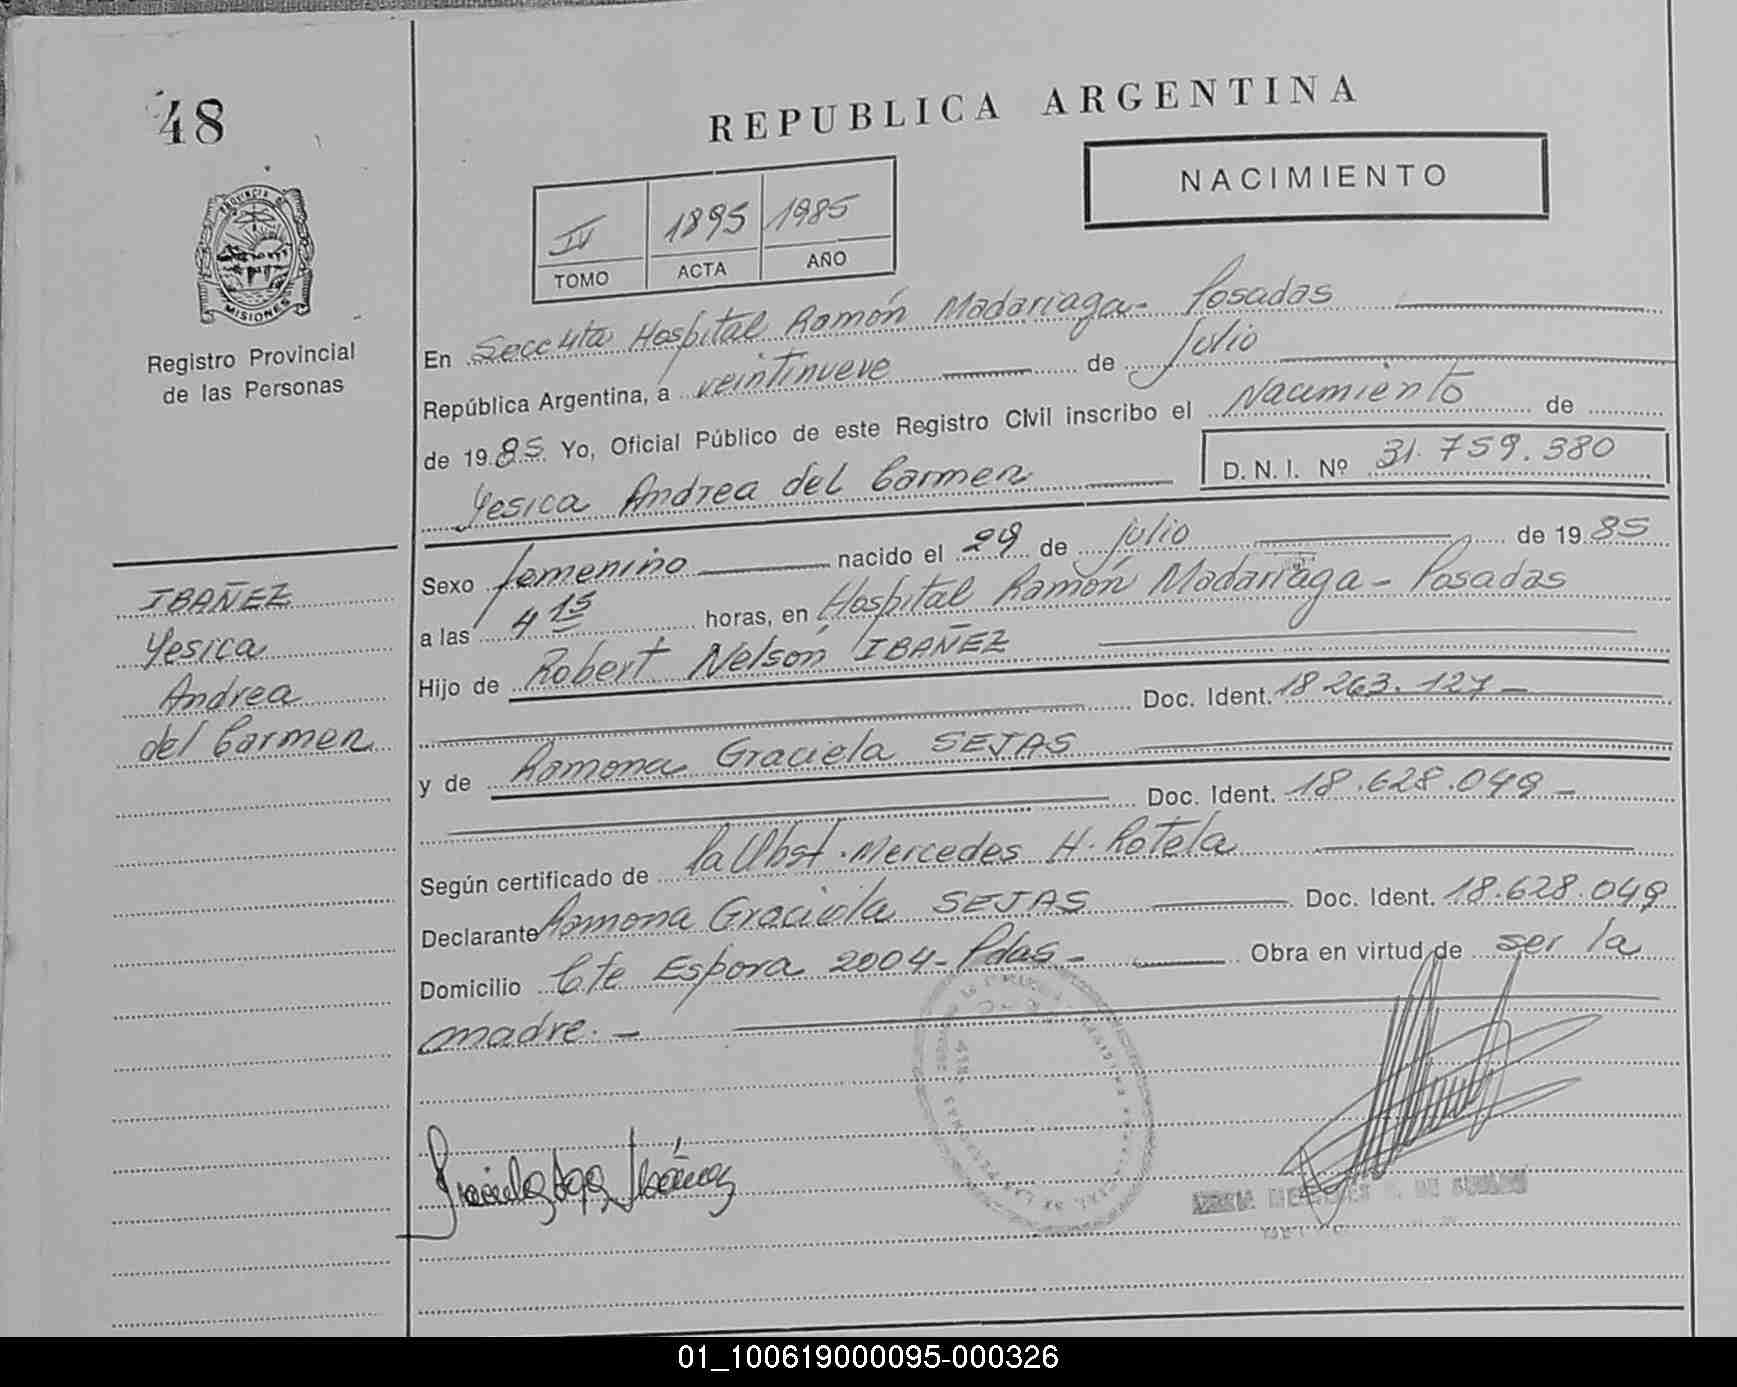 48
REPUBLICA ARGENTINA
NACIMIENTO
IV 1895 1985
TOMO ACTA AÑO
PROVINCIA DE
MISIONES
Registro Provincial
de las Personas
En Secc 4ta Hospital Ramón Madariaga - Posadas
República Argentina, a veintinueve de Julio
de 1985 Yo, Oficial Público de este Registro Civil inscribo el Nacimiento de
Yesica Andrea del Carmen D.N.I. Nº 31.759.380
Sexo femenino nacido el 29 de julio de 1985
a las 4 15 horas, en Hospital Ramón Madariaga - Posadas
Hijo de Robert Nelsón IBAÑEZ
Doc. Ident. 18.263.127 -
y de Ramona Graciela SEJAS
Doc. Ident. 18.628.049 -
Según certificado de la Obst. Mercedes H. Rotela
Declarante Ramona Graciela SEJAS Doc. Ident. 18.628.049
Domicilio Cte Espora 2004 - Pdas - Obra en virtud de ser la
madre. -
IBAÑEZ
Yesica
Andrea
del Carmen
01_100619000095-000326